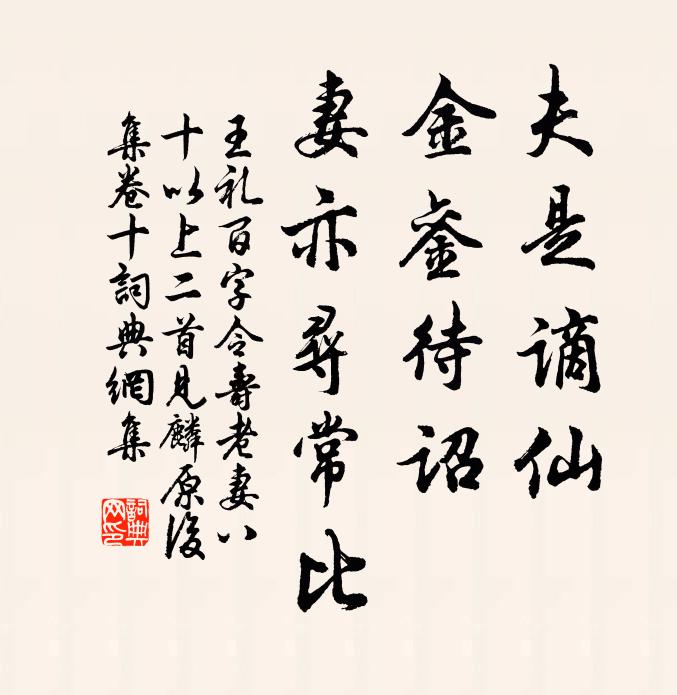 夫是谪仙
金銮待诏
妻亦寻常比
王礼百字令寿老妻八
十以上二首见麟原后
集卷十词典网集
词典网印